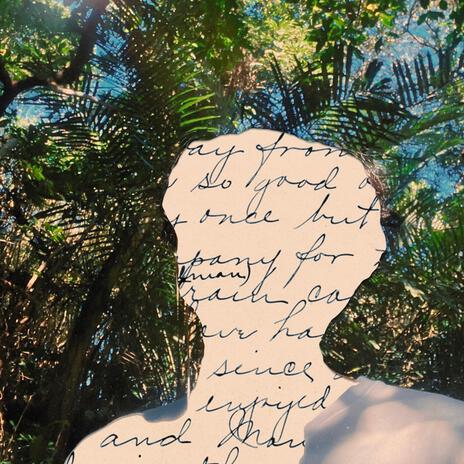 ay from
so good
once but
pany for
(man)
rain ca
ever ha
since
enjoyed
and Mau